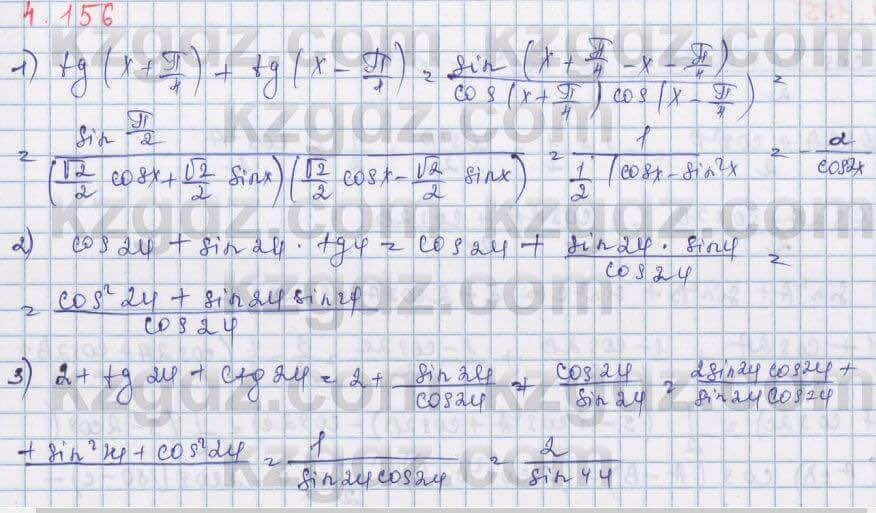 4.156
1) tg(x + π/4) + tg(x - π/4) = sin(x + π/4 - x - π/4) / cos(x + π/4) cos(x - π/4) =
= sin π/2 / (√2/2 cosx + √2/2 sinx)(√2/2 cosx - √2/2 sinx) = 1 / 1/2 (cosx - sin²x = - 2/cos2x
2) cos2y + sin2y · tgy = cos2y + sin2y · siny / cos2y =
= cos²2y + sin2y sin2y / cos2y
3) 2 + tg2y + ctg2y = 2 + sin2y/cos2y + cos2y/sin2y = 2sin2y cos2y + / sin2y cos2y
+ sin²2y + cos²2y = 1 / sin2y cos2y = 2 / sin4y
kzgdz.com